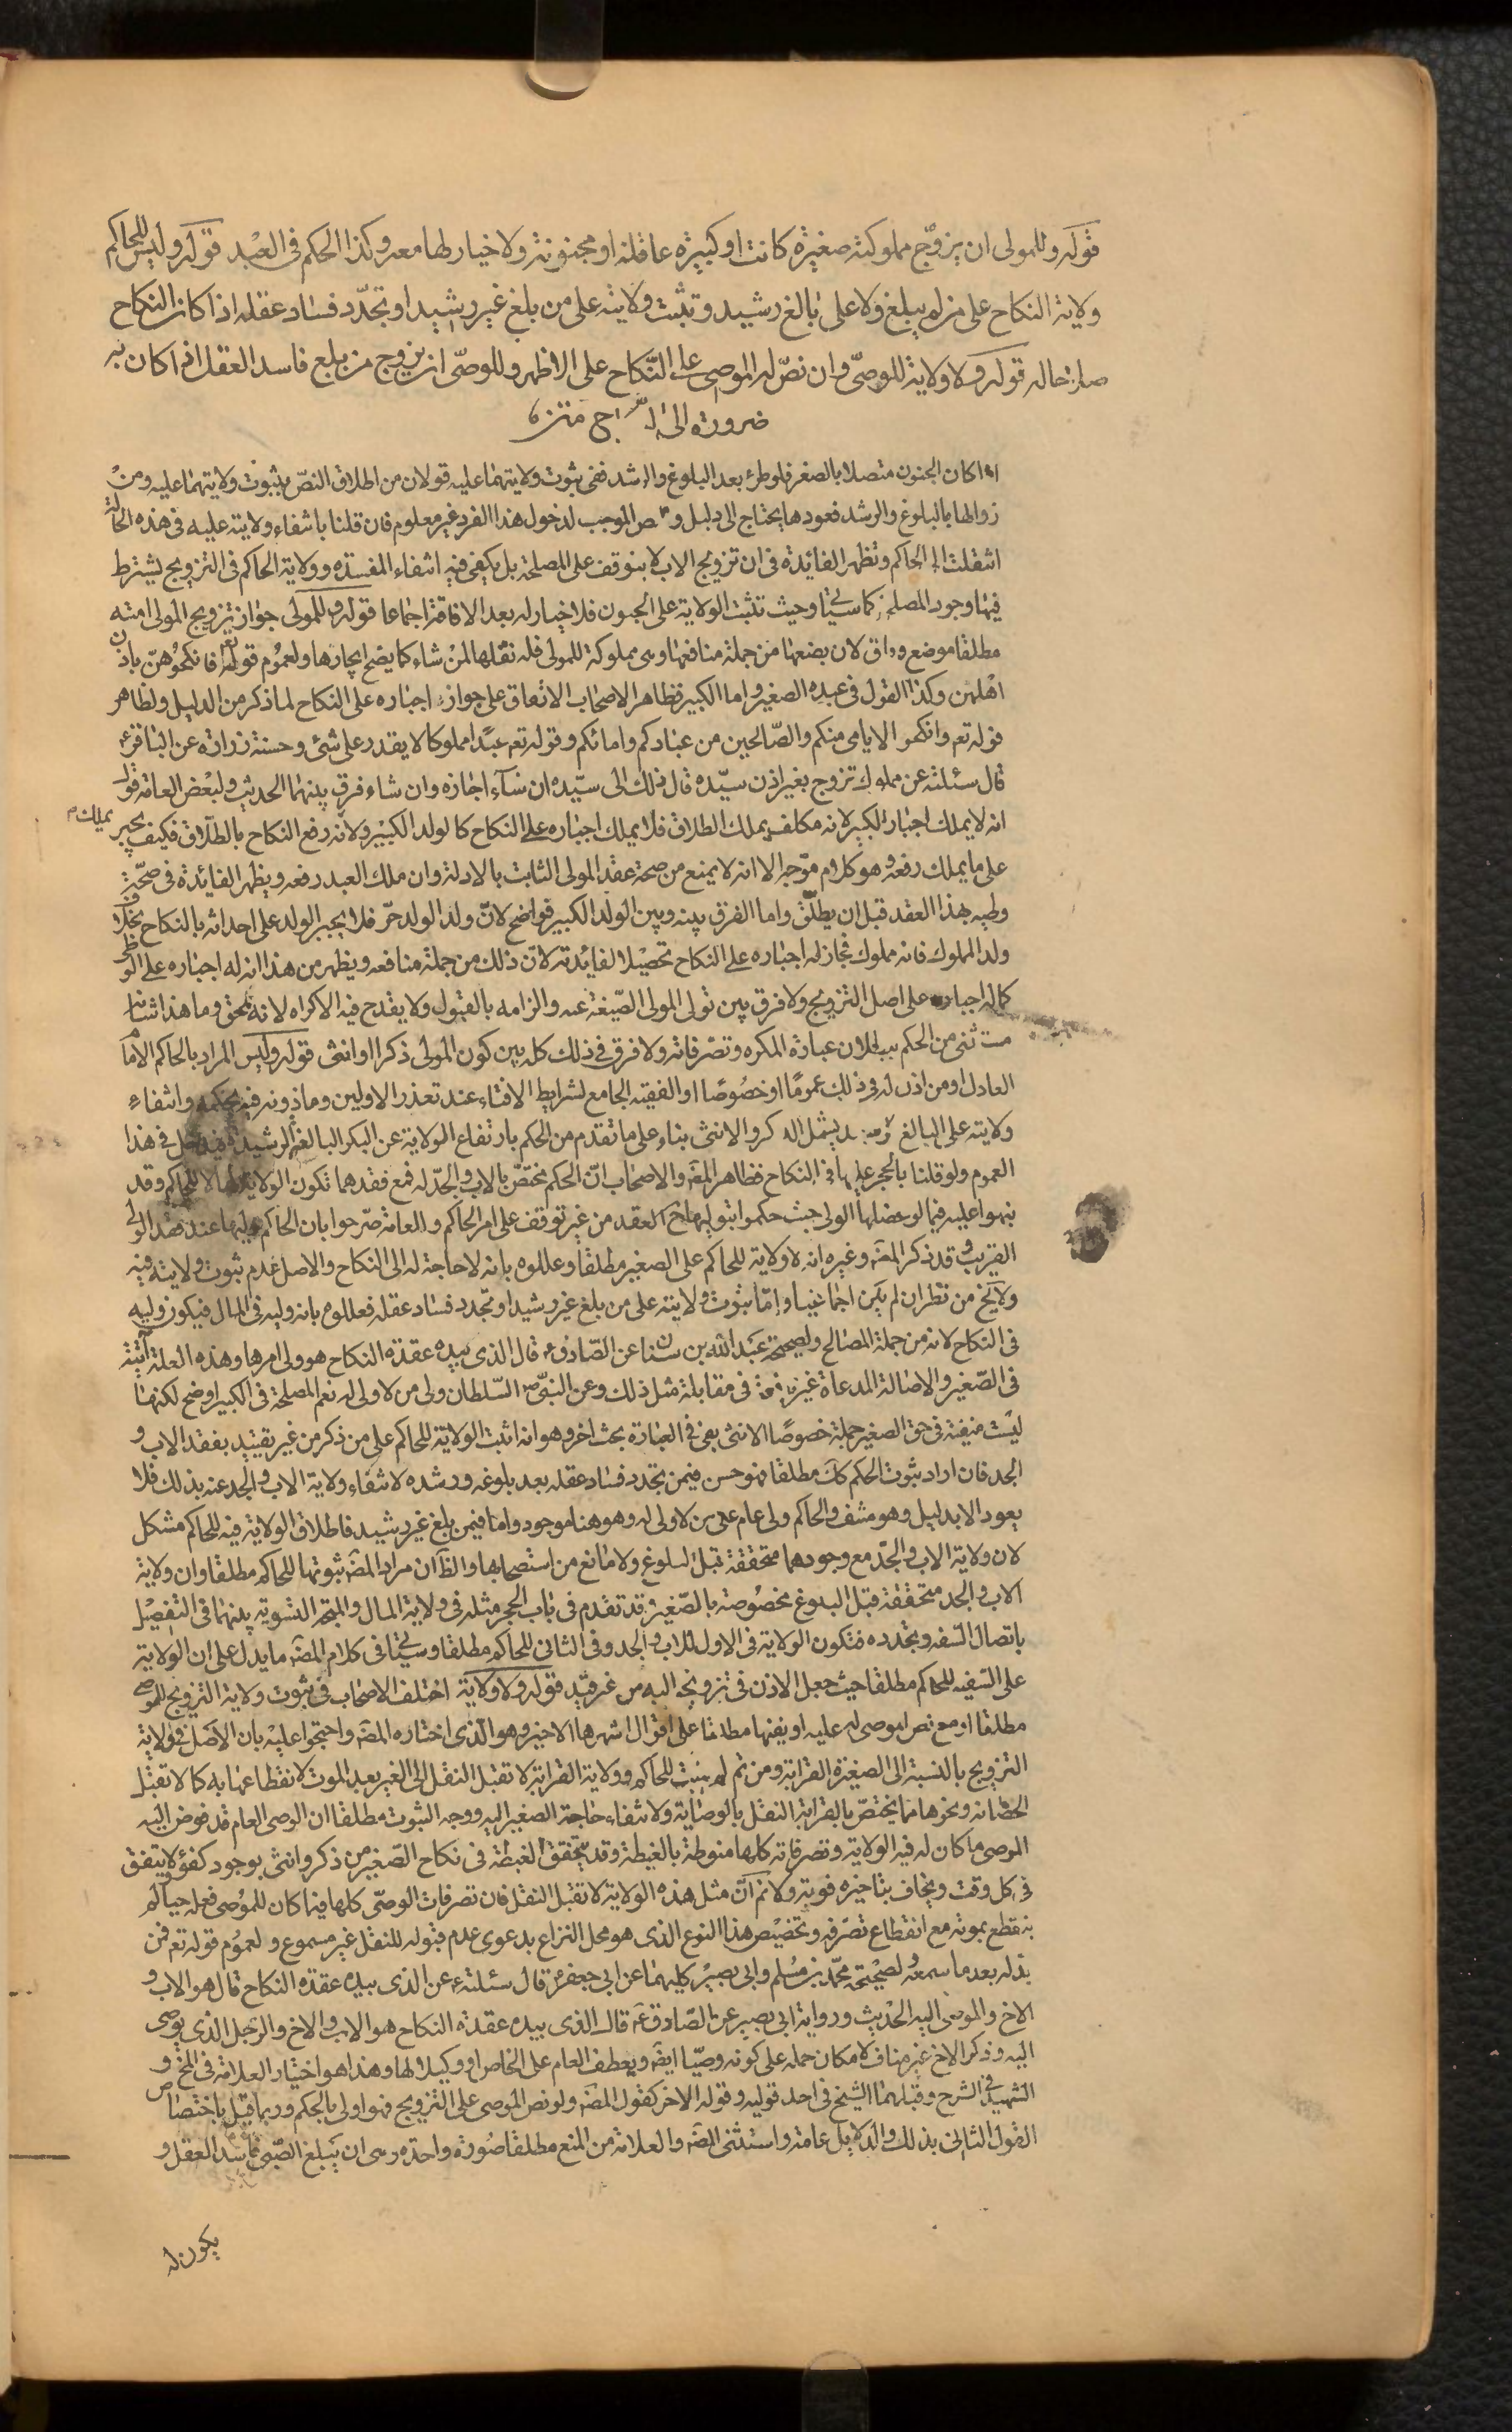 قوله وللمولى ان يزوّج مملوكته صغيرة كانت او كبيرة عاقلة او مجنونة ولا خيار لها معه وكذا الحكم في العبد قوله وليس للحاكم
ولاية النكاح على من لم يبلغ ولا على بالغ رشيد وتثبت ولايته على من بلغ غير رشيد او تجدّد فساد عقله اذا كان النكاح
صلاحا له قوله ولا ولاية للوصىّ وان نصّ له الموصى على النّكاح على الاظهر وللوصّى ان يزوج من بلغ فاسد العقل اذا كان به
ضرورة الى
اذا كان الجنون متصلا بالصغر فلو طرء بعد البلوغ والرشد ففى ثبوت ولايتهما عليه قولان من اطلاق النصّ بثبوت ولايتهما عليه ومن
زوالها بالبلوغ والرشد فعودها يحتاج الى دليل و الموجب لدخول هذا الفرد غير معلوم فان قلنا بانتفاء ولايته عليه فى هذه الحالة
انتقلت الى الحاكم وتظهر الفائدة فى ان تزويج الاب لا يتوقف على المصلحة بل يكفى فيه انتفاء المفسدة وولاية الحاكم فى التزويج يشترط
فيها وجود المصلحة كما سياتى وحيث تثبت الولاية على المجنون فلا خيار له بعد الافاقة اجماعا قوله وللمولى جواز تزويج المولى امته
مطلقا موضع وفاق لان بضعها من جملة منافعها وهى مملوكة للمولى فله نقلها لمن شاء كما يصح ايجارها ولعموم قوله تعم فانكحوهنّ باذن
اهلهن وكذا القول فى عبده الصغير واما الكبير فظاهر الاصحاب الاتفاق على جواز اجباره على النكاح لما ذكر من الدليل ولظاهر
قوله تعم وانكحوا الايامى منكم والصّالحين من عبادكم وامائكم وقوله تعم عبدا مملوكا لا يقدر على شئ وحسنة زرارة عن الباقر ع
قال سئلته عن مملوك تزوج بغير اذن سيّده قال ذلك الى سيّده ان شآء اجازه وان شاء فرق بينهما الحديث ولبعض العامة قول
انه لا يملك اجبار الكبير لانه مكلف يملك الطلاق فلا يملك اجباره على النكاح كالولد الكبير ولانه يملك رفع النكاح بالطلاق فكيف يجبر
على ما يملك رفعه وهو كلام موّجه الا انه لا يمنع من صحة عقد المولى الثابت بالادلة وان ملك العبد رفعه ويظهر الفائدة فى صحّة
وطيه بهذا العقد قبل ان يطلّق واما الفرق بينه وبين الولد الكبير فواضح لانّ ولد الولد حرّ فلا يجبر الولد على احداثه بالنكاح بخلاف
ولد المملوك فانه مملوك فجاز له اجباره على النكاح تحصيلا لفائدته لانّ ذلك من جملة منافعه ويظهر من هذا ان له اجباره على الوطى
كما له اجباره على اصل التزويج ولا فرق بين تولى المولى الصّيغة عنه والزامه بالقبول ولا يقدح فيه الاكراه لانه بحق وما هذا شانه
مستثنى من الحكم ببطلان عبارة المكره وتصرفاته ولا فرق فى ذلك كله بين كون المولى ذكرا او انثى قوله وليس المراد بالحاكم الامام
العادل او من اذن له فى ذلك عموما او خصوصا او الفقيه الجامع لشرايط الافتاء عند تعذر الاولين وماذونه فيه بحكمه وانتفاء
ولايته على البالغ يشمل الذكر والانثى بناء على ما تقدم من الحكم بارتفاع الولاية عن البكر البالغة الرشيدة فيدخل فى هذا
العموم ولو قلنا بالحجر عليها فى النكاح فظاهر المصّ والاصحاب انّ الحكم مختصّ بالاب والجدّ له فمع فقدهما تكون الولاية لها لا للحاكم وقد
نبهوا عليه فيما لو عضلها الولى حيث حكموا بتوليها العقد من غير توقف على امر الحاكم والعامة صّرحوا بان الحاكم وليها عند فقد الولى
القريب وقد ذكر المصّ وغيره انه لا ولاية للحاكم على الصغير مطلقا وعللوه بانه لا حاجة له الى النكاح والاصل عدم ثبوت ولايته فيه
ولا يخ من نظر ان لم يكن اجماعيا وامّا ثبوت ولايته على من بلغ غير رشيد او تجدد فساد عقله فعللوه بانه وليه فى المال فيكون وليه
فى النكاح لانه من جملة المصالح ولصحيحة عبد الله بن سنان عن الصّادق ع قال الذى بيده عقدة النكاح هو ولى امرها وهذه العلة آتية
فى الصّغير والاصالة المدعاة غير فى مقابلة مثل ذلك وعن النبىّ ص السّلطان ولى من لا ولى له نعم المصلحة فى الكبير اوضح لكنها
ليست منفية فى حق الصغير جملة خصوصا الانثى بقى فى العبارة بحث اخر وهو انه اثبت الولاية للحاكم على من ذكر من غير تقييد بفقد الاب و
الجد فان اراد بثبوت الحكم كك مطلقا فهو حسن فيمن تجدد فساد عقله بعد بلوغه ورشده لانتفاء ولاية الاب والجد عنه بذلك فلا
يعود الا بدليل وهو منتف والحاكم ولى عام على من لا ولى له وهو هنا موجود واما فيمن بلغ غير رشيد فاطلاق الولاية فيه للحاكم مشكل
لان ولاية الاب والجدّ مع وجودهما متحققة قبل البلوغ ولا مانع من استصحابها والظ ان مراد المصّ ثبوتها للحاكم مطلقا وان ولاية
الاب والجد متحققة قبل البلوغ مخصوصة بالصّغير وقد تقدم فى باب الحجر مثله فى ولاية المال والمتجه التسوية بينهما فى التفصيل
باتصال السّفه وتجدده فتكون الولاية فى الاول للاب والجد وفى الثانى للحاكم مطلقا وسياتى فى كلام المصّ ما يدل على ان الولاية
على السّفيه للحاكم مطلقا حيث جعل الاذن فى تزويجه اليه من غير قيد قوله ولا ولاية اختلف الاصحاب فى ثبوت ولاية التزويج للوصى
مطلقا او مع نص الموصى له عليه او نفيها مطلقا على اقوال اشهرها الاخير وهو الّذى اختاره المصّ واحتجوا عليه بان الاصل فى ولاية
التزويج بالنسبة الى الصغيرة القرابة ومن ثم لم يثبت للحاكم وولاية القرابة لا تقبل النقل الى الغير بعد الموت لانقطاعها به كما لا تقبل
الحضانة ونحوها مما يختصّ بالقرابة النقل بالوصاية ولانتفاء حاجة الصغير اليه ووجه الثبوت مطلقا ان الوصى العام قد فوض اليه
الموصى ما كان له فيه الولاية وتصرفاته كلها منوطة بالغبطة وقد يتحقق الغبطة فى نكاح الصّغير من ذكر وانثى بوجود كفؤ لا يتفق
فى كل وقت ويخاف بتاخيره فوته ولا نم انّ مثل هذه الولاية لا تقبل النقل فان تصرفات الوصّى كلها فيما كان للموصى فعله حيا ولم
ينقطع بموته مع انقطاع تصّرفه وتخصيص هذا النوع الذى هو محل النزاع بدعوى عدم قبوله للنقل غير مسموع ولعموم قوله تعم فمن
بدله بعد ما سمعه ولصحيحة محمّد بن مسلم وابى بصير كليهما عن ابى جعفر ع قال سئلته عن الذى بيده عقدة النكاح قال هو الاب و
الاخ والموصى اليه الحديث ورواية ابى بصير عن الصّادق ع قال الذى بيده عقدة النكاح هو الاب والاخ والرجل الذى يوصى
اليه وذكر الاخ غير مناف لامكان حمله على كونه وصيّا ايضا ويعطف العام على الخاص او وكيلا لها وهذا هو اختيار العلامة فى المخ و
الشهيد فى الشرح وقبلهما الشيخ فى احد قوليه وقوله الاخر كقول المصّ ولو نص الموصى على التزويج فهو اولى بالحكم وربما قيل باختصاص
القول الثانى بذلك والدلايل عامة واستثنى المصّ والعلامة من المنع مطلقا صورة واحدة وهى ان يبلغ الصّبى فاسد العقل و
يكون له